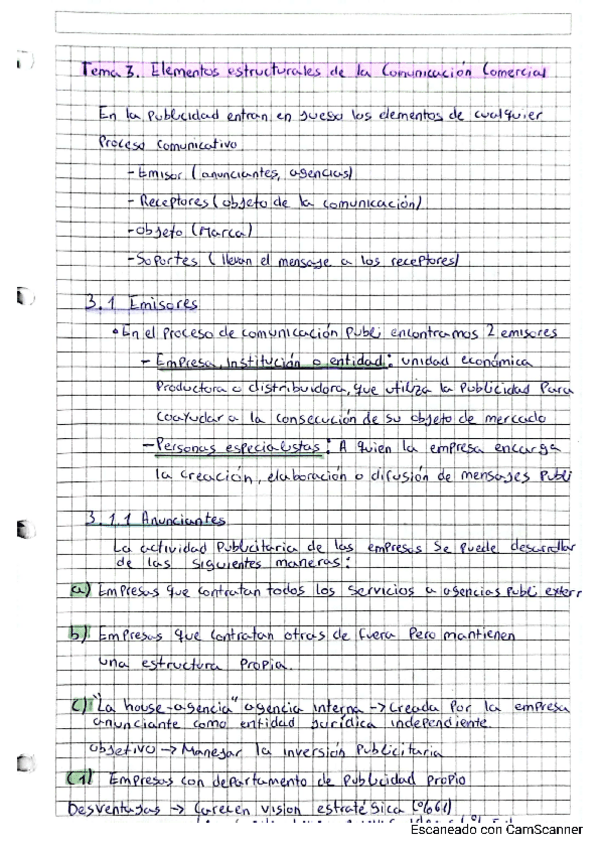 Tema 3. Elementos estructurales de la Comunicación Comercial
En la Publicidad entran en juego los elementos de cualquier
Proceso comunicativo
- Emisor (anunciantes, agencias)
- Receptores (objeto de la comunicación)
- objeto (Marca)
- Soportes (llevan el mensaje a los receptores)
3.1 Emisores
• En el Proceso de comunicación Publi encontramos 2 emisores
- Empresa, Institución o entidad: unidad económica
Productora o distribuidora, que utiliza la Publicidad Para
coayudar a la consecución de su objeto de mercado
- Personas especialistas: A quien la empresa encarga
la creación, elaboración o difusión de mensajes Publi
3.1.1 Anunciantes
La actividad Publicitaria de las empresas se puede desarrollar
de las siguientes maneras:
a) Empresas que contratan todos los servicios a agencias Publi extern
b) Empresas que contratan otras de fuera Pero mantienen
una estructura Propia.
c) "La house-agencia" agencia interna -> Creada Por la empresa
anunciante como entidad jurídica independiente.
objetivo -> Manejar la inversión Publicitaria
C1) Empresas con departamento de Publicidad Propio
Desventajas -> Carecen vision estratégica
Escaneado con CamScanner